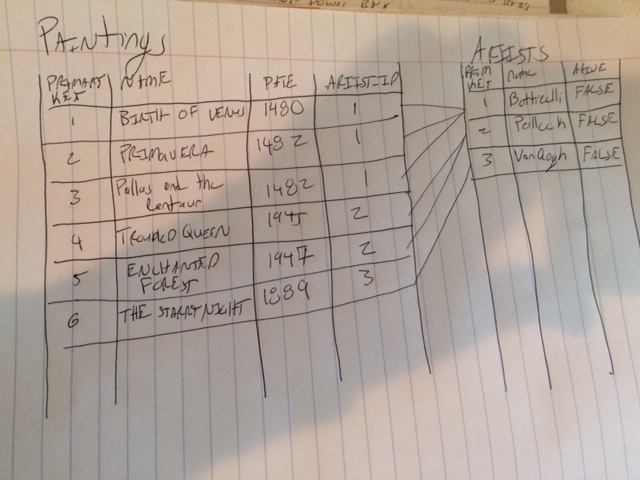 PAINTINGS
PRIMARY KEY NAME DATE ARTIST-ID
1 BIRTH OF VENUS 1480 1
2 PRIMAVERA 1482 1
3 Pallas and the Centaur 1482 1
4 TROUBLED QUEEN 1945 2
5 ENCHANTED FOREST 1947 2
6 THE STARRY NIGHT 1889 3
ARTISTS
PRIM KEY NAME ALIVE
1 Botticelli FALSE
2 Pollock FALSE
3 VanGogh FALSE